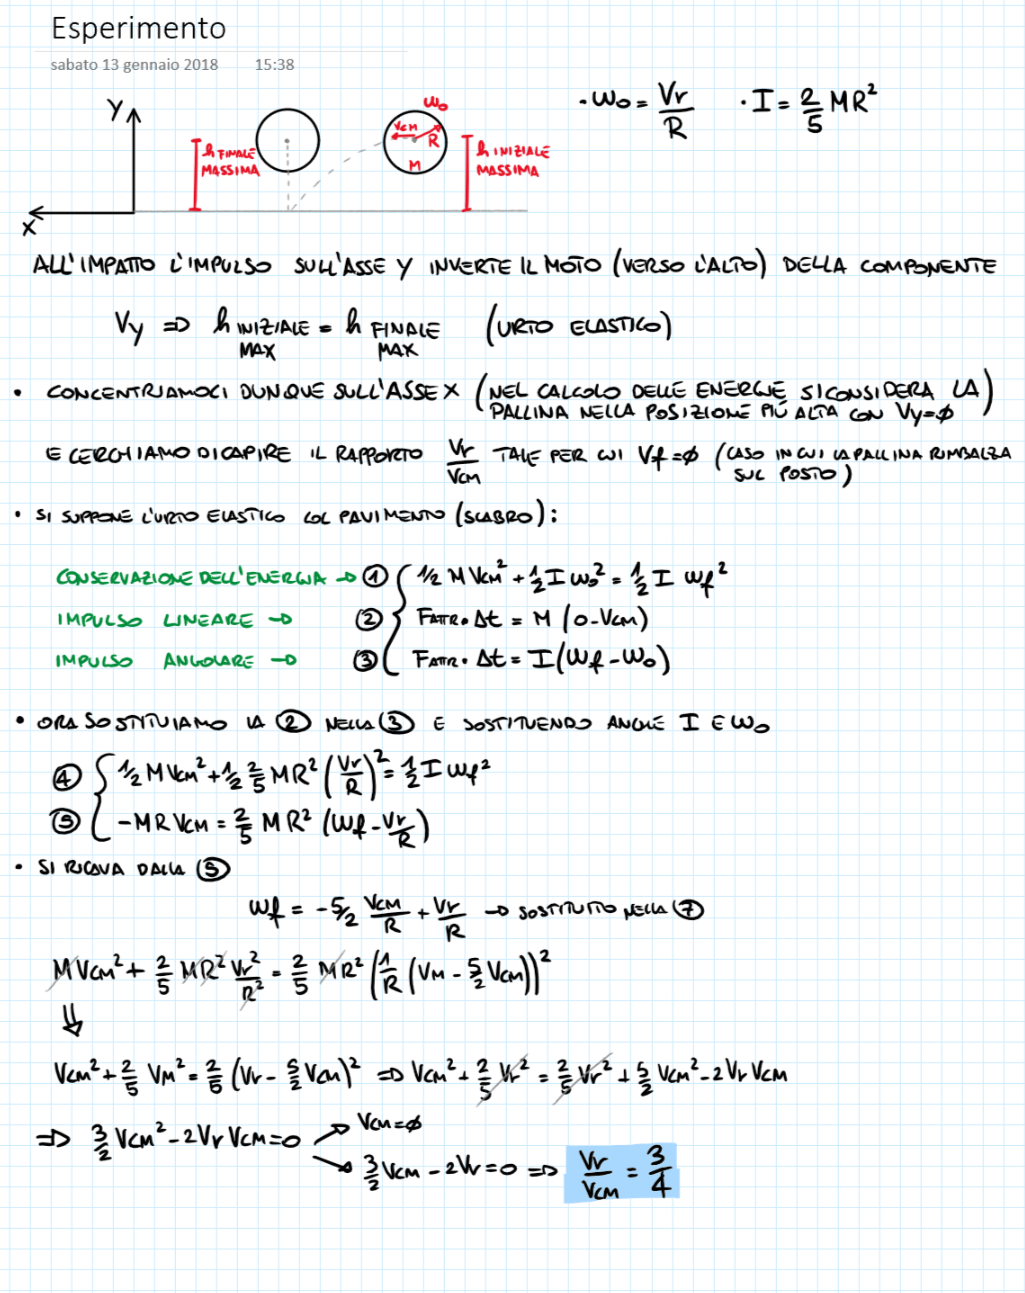 Esperimento
sabato 13 gennaio 2018 15:38
· ω₀ = Vr/R · I = 2/5 MR²
Y
ω₀
VCM
R
M
h FINALE
MASSIMA
h INIZIALE
MASSIMA
X
ALL'IMPATTO L'IMPULSO SULL'ASSE Y INVERTE IL MOTO (VERSO L'ALTO) DELLA COMPONENTE
Vy => h INIZIALE MAX = h FINALE MAX (URTO ELASTICO)
• CONCENTRIAMOCI DUNQUE SULL'ASSE X (NEL CALCOLO DELLE ENERGIE SI CONSIDERA LA
PALLINA NELLA POSIZIONE PIÙ ALTA CON Vy=ø)
E CERCHIAMO DI CAPIRE IL RAPPORTO Vr/VCM TALE PER CUI Vf=ø (CASO IN CUI LA PALLINA RIMBALZA
SUL POSTO)
• SI SUPPONE L'URTO ELASTICO COL PAVIMENTO (SCABRO):
CONSERVAZIONE DELL'ENERGIA → ① { 1/2 M VCM² + 1/2 I ω₀² = 1/2 I ωf²
IMPULSO LINEARE → ② FATTR · Δt = M (0-VCM)
IMPULSO ANGOLARE → ③ FATTR · Δt = I(ωf-ω₀)
• ORA SOSTITUIAMO LA ② NELLA ③ E SOSTITUENDO ANCHE I E ω₀
④ { 1/2 M VCM² + 1/2 2/5 MR² (Vr/R)² = 1/2 I ωf²
⑤ -MR VCM = 2/5 MR² (ωf - Vr/R)
• SI RICAVA DALLA ⑤
ωf = -5/2 VCM/R + Vr/R → SOSTITUITO NELLA ⑦
M VCM² + 2/5 MR² Vr²/R² = 2/5 MR² (1/R (VM - 5/2 VCM))²
⇓
VCM² + 2/5 VM² = 2/5 (Vr - 5/2 VCM)² => VCM² + 2/5 Vr² = 2/5 Vr² + 5/2 VCM² - 2Vr VCM
=> 3/2 VCM² - 2Vr VCM = 0 → VCM = ø
→ 3/2 VCM - 2Vr = 0 => Vr/VCM = 3/4